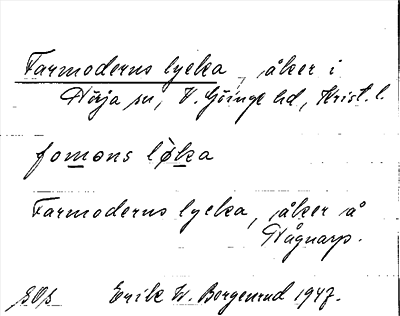 Farmoderns lycka, åker i
Röja sn, V. Göinge hd, Krist. l.
fomons løka
Farmoderns lycka, åker å
Vågnarp.
Erik W. Borgenrud 1947.